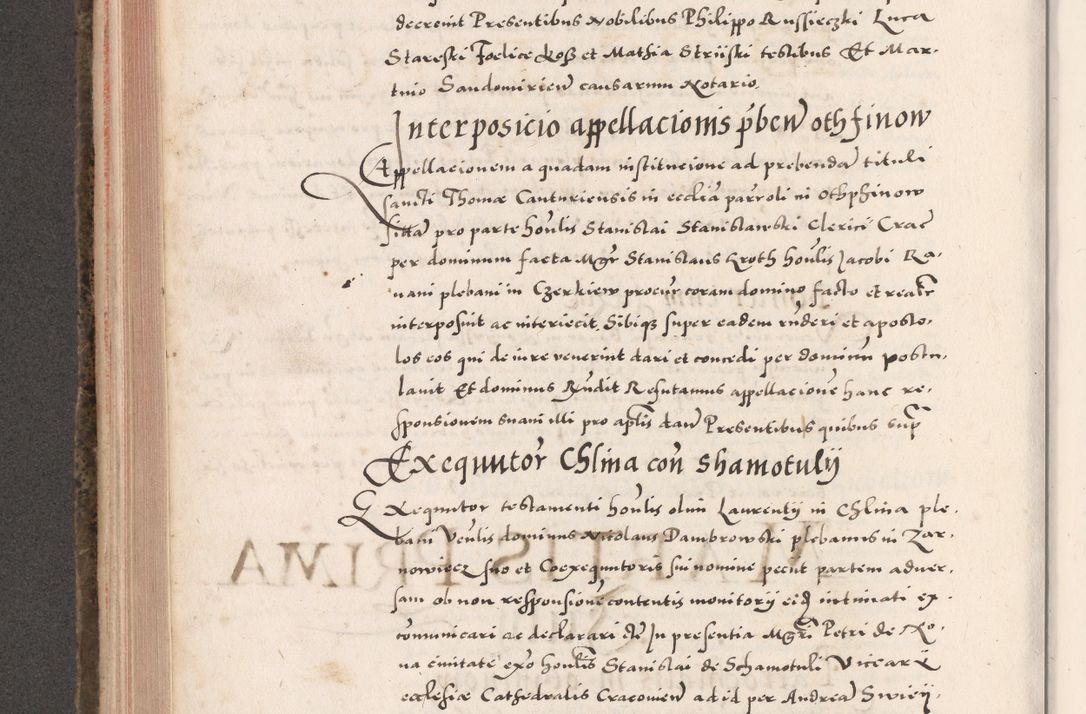 decrevit Presentibus Nobilibus Philippo Russieczki Luca
Stareski Foelice Koß et Mathia Strijski testibus Et Mar-
tino Sandomirien̄ causarum Notario.
Interposicio appellacionis p̄ben̄ othfinow
Appellacionem a quadam institucione ad prebendā tituli
sancti Thomæ Canturiensis in ecclīa parroli in Othphinow
sitā pro parte hon̄lis Stanislai Stanislawski Clerici Crac̄
per dominum facta Mgr̄ Stanislaus Kroth hon̄lis Jacobi Ra-
uani plebani in Czerkiew procur̄ coram domino facto et
interposuit ac interiecit. Sibiqz super eadem rn̄deri et aposto-
los eos qui de iure venerint dari et concedi per dominum postu-
lauit Et dominus Rn̄dit Refutamus appellacionē hanc re-
sponsionem suam illi pro aplīs dan̄ Presentibus quibus sup̄
Exequutor̄ Chlina con̄ Shamotulij
Exequutor testamenti hon̄lis olim Laurentij in Chlina ple-
bani Ven̄lis dominus Nicolaus Dambrowski plebanus in Zar-
nowiecz suo et Coexequutoris sui nomine peciit partem aduer-
sam ob non responsionē contentis monitorij intimati ex-
cōmunicari ac declarari In presentia Mgr̄i Petri de No-
ua ciuitate hon̄lis Stanislai de Schamotuli Vicearij
ecclesiæ Cathedralis Cracovien̄ ad id per Andreā Swiey-
MARTIS PRIMA